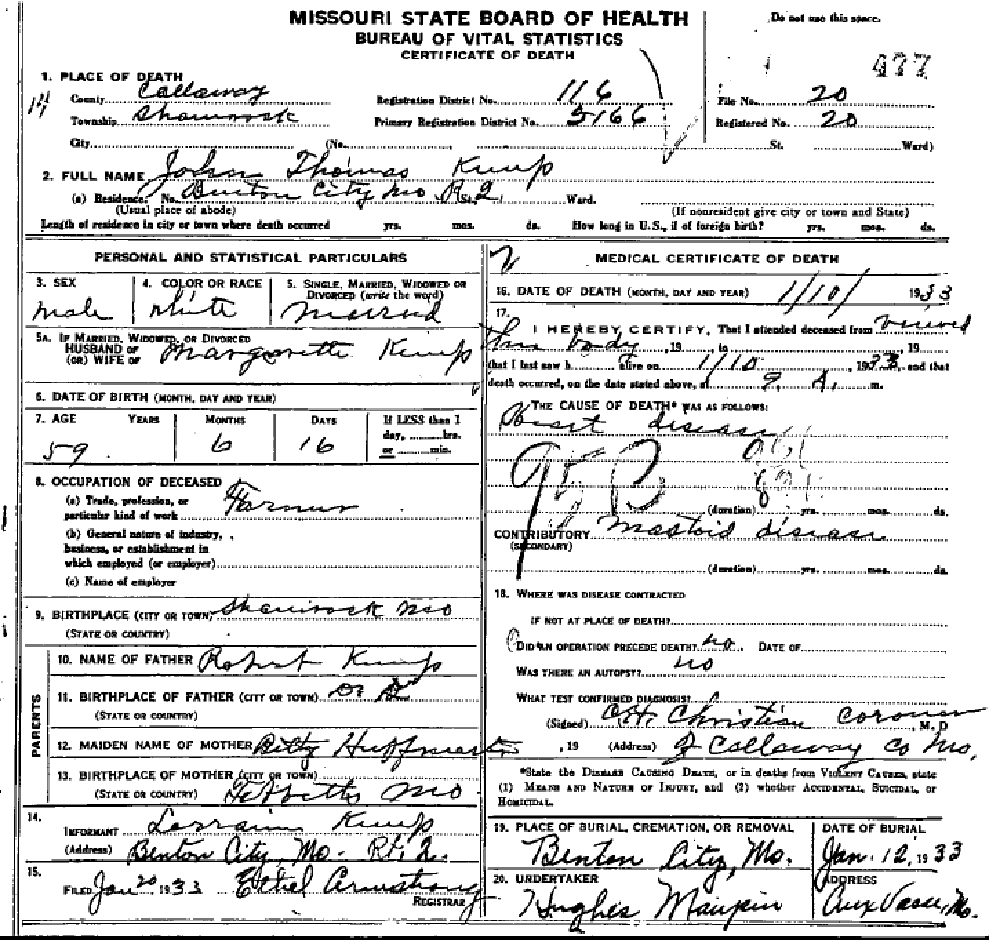 MISSOURI STATE BOARD OF HEALTH
BUREAU OF VITAL STATISTICS
CERTIFICATE OF DEATH
Do not use this space.
477
1. PLACE OF DEATH
14
County Callaway Registration District No. 116 File No. 20
Township Shamrock Primary Registration District No. 5166 Registered No. 20
City (No. St. Ward)
2. FULL NAME John Thomas Kemp
(a) Residence. No. Benton City Mo R 2 St., Ward.
(Usual place of abode) (If nonresident give city or town and State)
Length of residence in city or town where death occurred yrs. mos. ds. How long in U.S., if of foreign birth? yrs. mos. ds.
PERSONAL AND STATISTICAL PARTICULARS
3. SEX 4. COLOR OR RACE 5. SINGLE, MARRIED, WIDOWED OR
DIVORCED (write the word)
male white Married
5A. IF MARRIED, WIDOWED, OR DIVORCED
HUSBAND OF
(OR) WIFE OF Margarette Kemp
6. DATE OF BIRTH (MONTH, DAY AND YEAR)
7. AGE YEARS MONTHS DAYS If LESS than 1
day, ........hrs.
or ........min.
59 6 16
8. OCCUPATION OF DECEASED
(a) Trade, profession, or
particular kind of work Farmer
(b) General nature of industry,
business, or establishment in
which employed (or employer)
(c) Name of employer
9. BIRTHPLACE (CITY OR TOWN) Shamrock Mo
(STATE OR COUNTRY)
PARENTS
10. NAME OF FATHER Robert Kemp
11. BIRTHPLACE OF FATHER (CITY OR TOWN)
(STATE OR COUNTRY)
12. MAIDEN NAME OF MOTHER Bitty
13. BIRTHPLACE OF MOTHER (CITY OR TOWN)
(STATE OR COUNTRY) Mo
14.
INFORMANT Lorraine Kemp
(Address) Benton City, Mo. Rt. 2.
15.
FILED Jan 20 1933 Ethel Armstrong
REGISTRAR
2
MEDICAL CERTIFICATE OF DEATH
16. DATE OF DEATH (MONTH, DAY AND YEAR) 1/10/ 1933
17.
I HEREBY CERTIFY, That I attended deceased from viewed
this body, 19 to , 19
that I last saw h alive on 1/10, 1933, and that
death occurred, on the date stated above, at 9 A. m.
THE CAUSE OF DEATH* WAS AS FOLLOWS:
Heart disease
95B
(duration) yrs. mos. ds.
CONTRIBUTORY Mastoid disease
(SECONDARY)
(duration) yrs. mos. ds.
18. WHERE WAS DISEASE CONTRACTED
IF NOT AT PLACE OF DEATH?
DID AN OPERATION PRECEDE DEATH? no DATE OF
WAS THERE AN AUTOPSY? no
WHAT TEST CONFIRMED DIAGNOSIS?
(Signed) C.H. Christian Coroner, M. D
, 19 (Address) of Callaway Co Mo.
*State the DISEASE CAUSING DEATH, or in deaths from VIOLENT CAUSES, state
(1) MEANS AND NATURE OF INJURY, and (2) whether ACCIDENTAL, SUICIDAL, or
HOMICIDAL.
19. PLACE OF BURIAL, CREMATION, OR REMOVAL DATE OF BURIAL
Benton City, Mo. Jan. 12, 1933
20. UNDERTAKER ADDRESS
Hughes Maupin Aux Vasse, Mo.